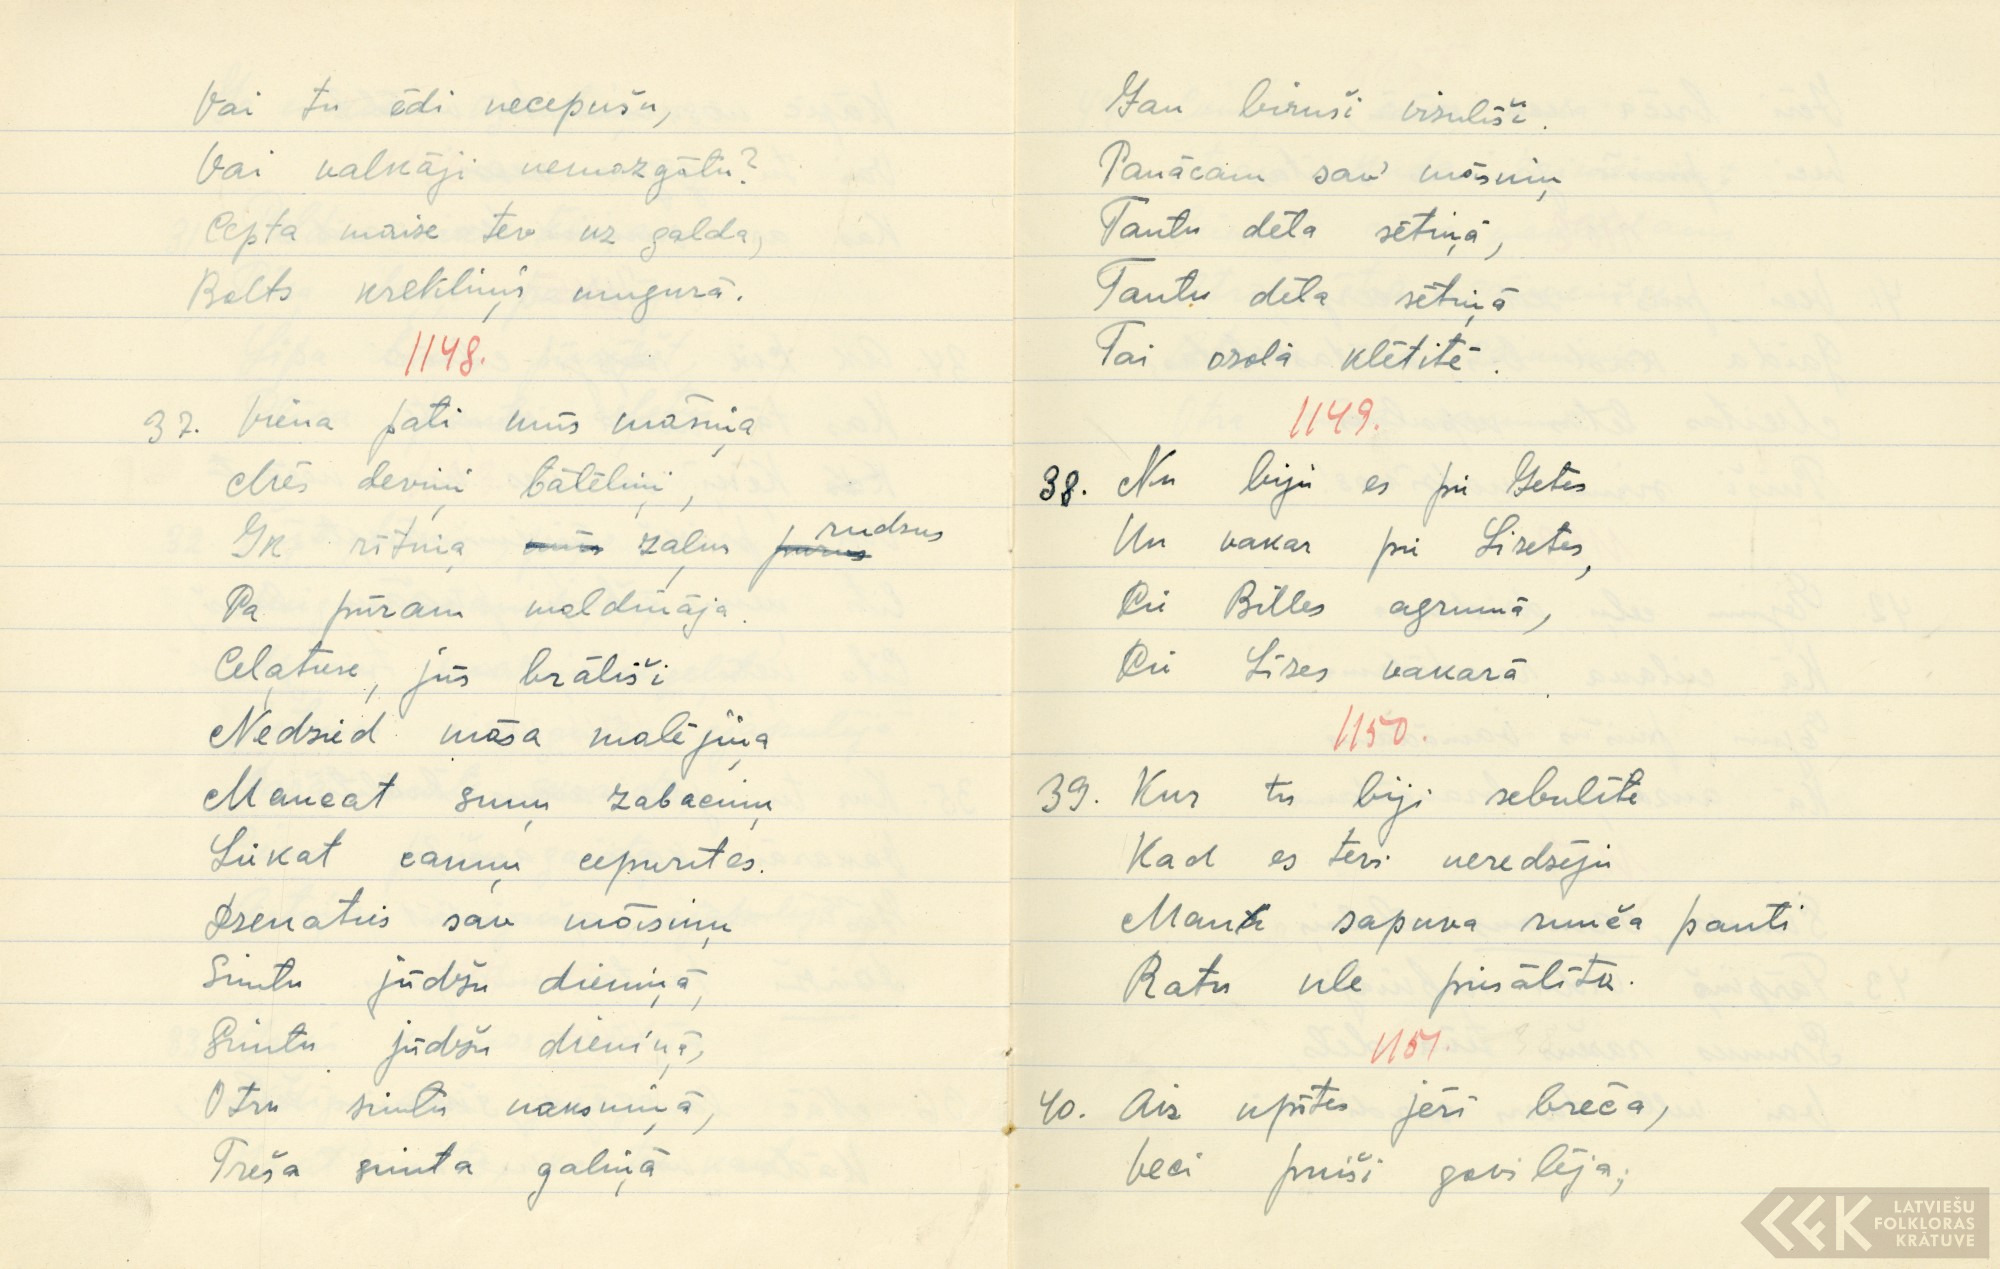 Vai tu ēdi necepušu,
Vai valkāji nemazgātu?
Cepta maize tev uz galda,
Bolts krekliņš mugurā.
1148.
37. Viena pati mūs māsiņa
Mēs deviņi bātēliņi,
Ik rītiņa mūs zaļus purus rudzus
Pa pūram maldināja.
Celatuse, jūs brālīši
Nedzied māsa malējiņa
Maucat sunu zabaciņu
Lūkat cauņu cepurītes.
Dzenatīs sav māsiņu
Simtu jūdžu dieniņā,
Simtu jūdžu dieniņā,
Otru simtu naksniņā,
Treša simta galiņā
Gan biruši vizulīši.
Panācam sav' māsiņu
Tautu dēla sētiņā,
Tautu dēla sētiņā
Tai ozola klētītē.
1149.
38. Nu biju es pii Getes
Un vakar pii Lizetes,
Pii Billes agrumā,
Pii Līzes vakarā.
1150.
39. Kur tu biji sebulīte
Kad es tevi neredzēju
Man sapuva runča pauti
Ratu ule piesālīta.
1151.
40. Aiz upītes jēri brēca,
Veci puiši gavilēja;
LATVIEŠU
FOLKLORAS
KRĀTUVE